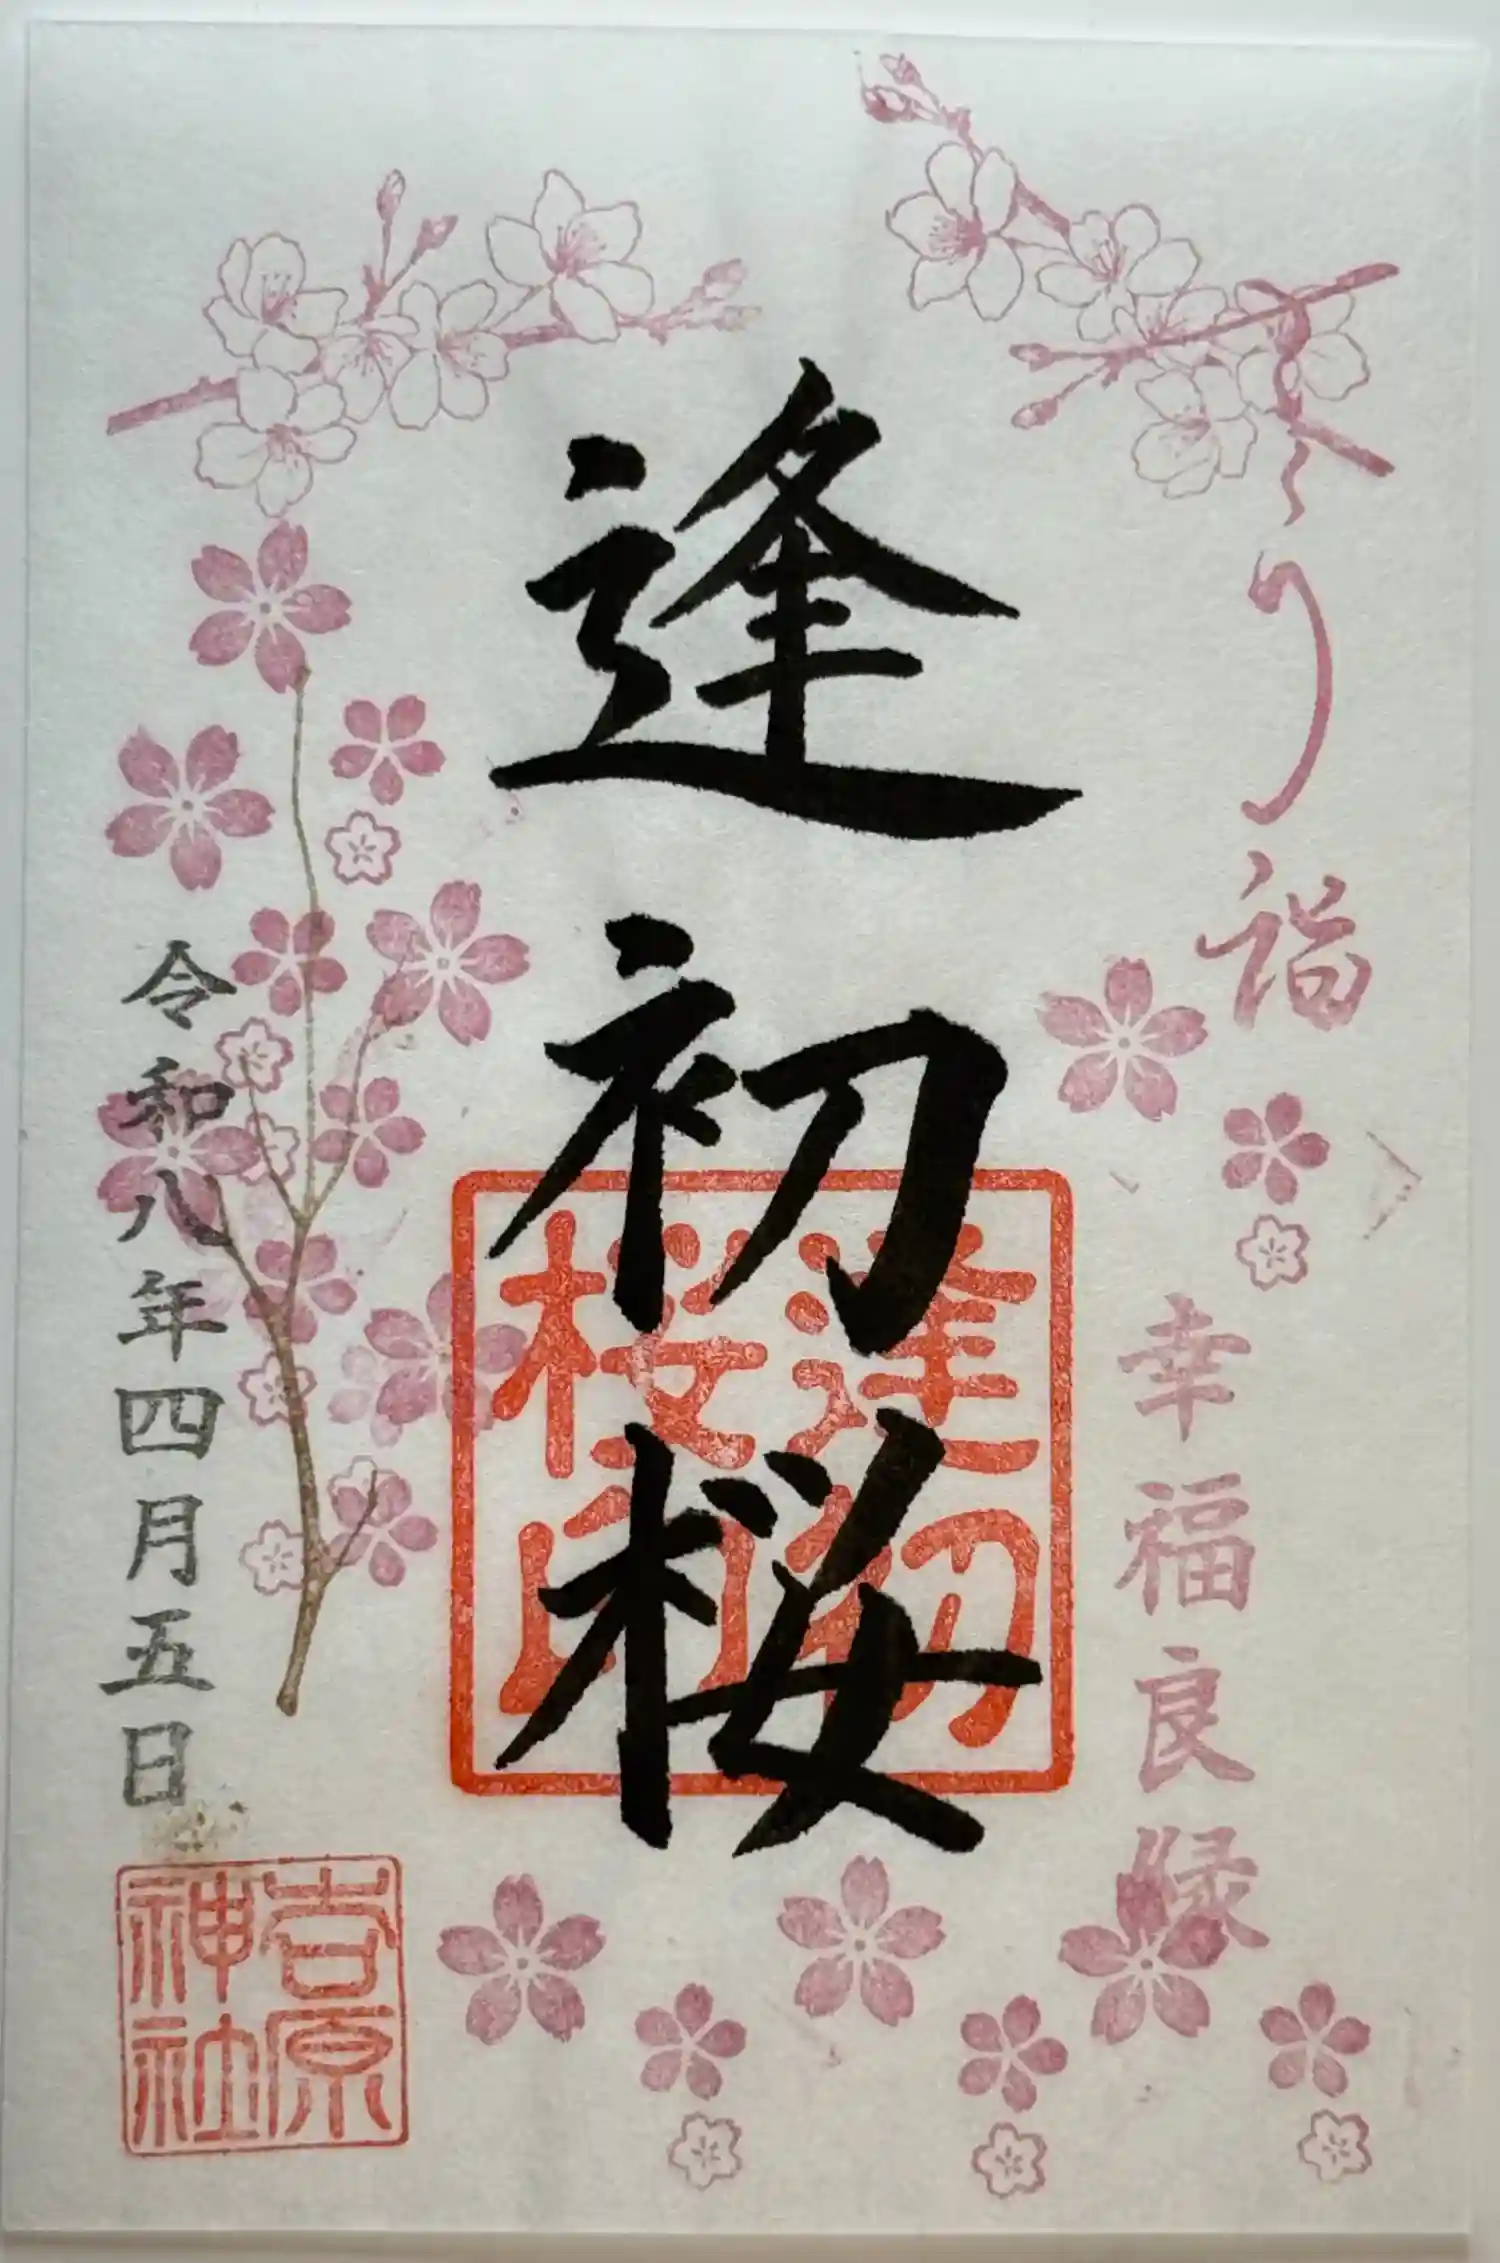 さくら詣
幸福良縁
逢初桜
逢初
桜印
令和八年四月五日
吉原
神社